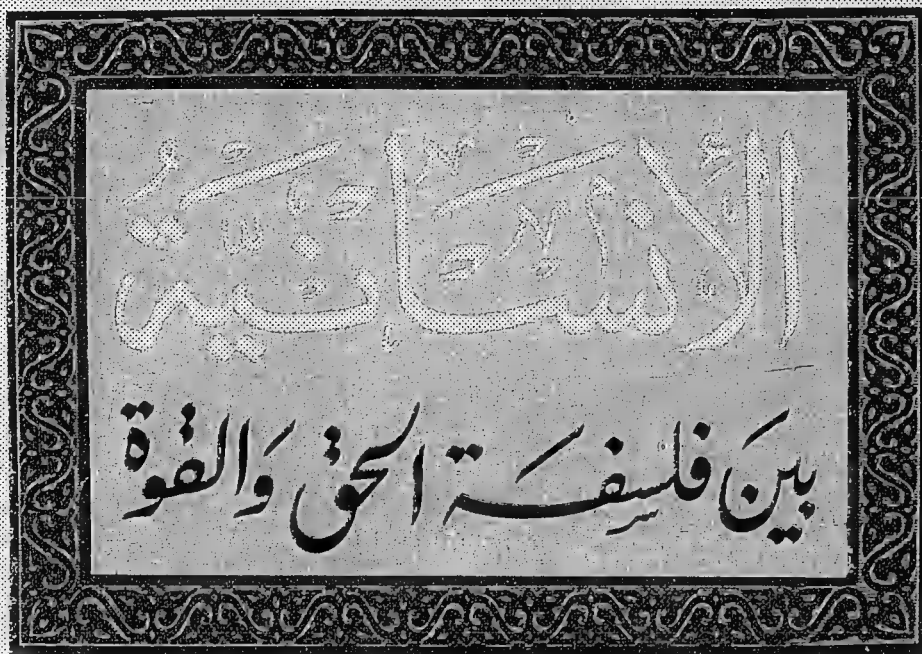 الإنسانية
بين فلسفة الحق والقوة